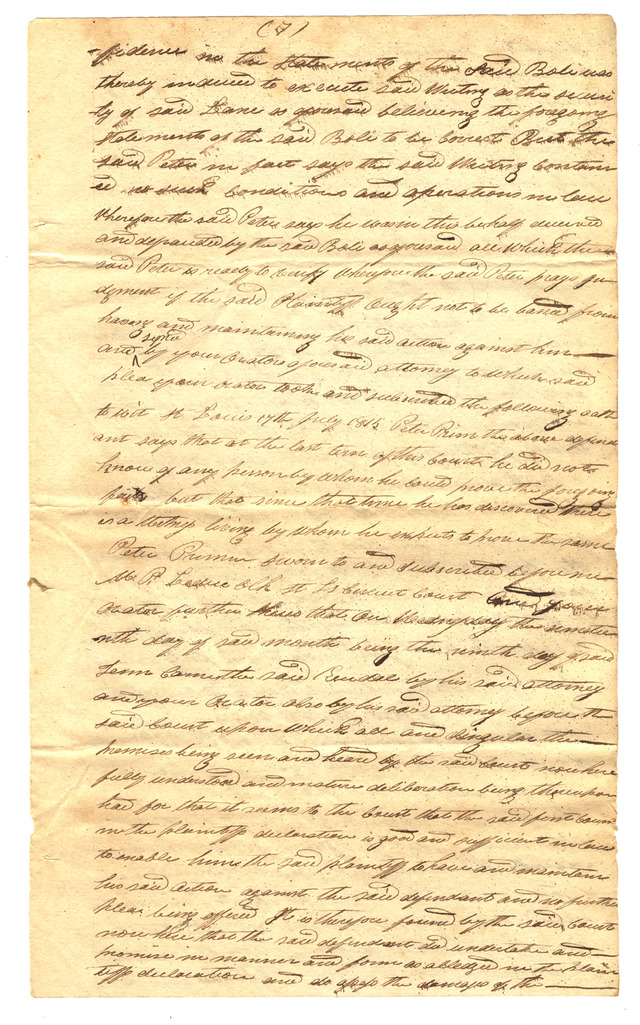 (7)
-fidence in the Statements of the said Boli was
thereby induced to execute said Writing as the securi
ty of said Lane as aforesaid believing the foregoing
statements of the said Boli to be correct But the
said Peter in fact says the said Writing contain
ed no such conditions and operations in law
Wherefore the said Peter says he was in this behalf deceived
and defrauded by the said Boli as aforesaid all which the
said Peter is ready to verify Wherefore the said Peter prays ju
dgment if the said Plaintiff ought not to be barred from
having and maintaining his said action against him —
signed
and by your Orators aforesaid attorney to which said
plea your orator took and subscribed the following oath
to wit St Louis 17th July 1815 Peter Primm the above defend
ant says that at the last term of this Court he did not
know of any person by whom he could prove the foregoing
facts but that since that time he has discovered there
is a living by whom he expects to prove the same
Peter Primm sworn to and subscribed before me
M P Leduc Clk St Ls Circuit Court
Orator further shews that on Wednesday the ninetee
nth day of said month being the ninth day of said
Term Came the said by his said attorney
and your Orator also by his said attorney before the
said Court upon which all and singular the —
premises being seen and heard by the said Court now here
fully understood and mature deliberation being thereupon
had for that it seems to the Court that the said first Count
in the plaintiffs declaration is good and sufficient in law
to enable him the said plaintiff to have and maintain
his said action against the said defendant and no further
plea being offered It is therefore found by the said Court
now here that the said defendant did undertake and —
promise in manner and form as alledged in the plain
tiffs declaration and do assess the damages of the —